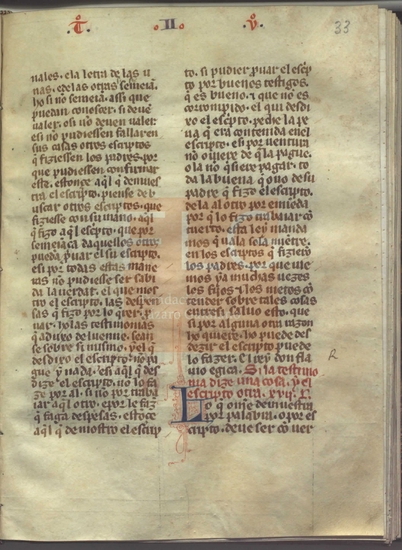 T. II V.
33
uales. e la letra de las u
nas. e de las otras semeia.
ho si no semeia. assi que
puedan conoscer. si deue
ualer. o si no deuen ualer.
e si no pudiessen fallar en
sus casas otros escriptos
que fiziessen los padres. por
que pudiessen confirmar
este. estonçe aq̃l a demues
tra el escripto. piense de b
uscar otros escriptos. que
fiziesse con su mano. aq̃l
q̃ fizo aq̃l escpto. que por
semeiança daquellos otros
pueda prouar el su escripto.
e si por todas estas mane
ras no pudiesse ser sabi
da la uerdat. el que mos
tro el escripto. las
sas q̃ fizo por lo q̃rer. p
uar. y las testimonias
q̃ aduxo de luenne. sean
se sobre si mismo. y el q̃
desdixo el escripto. no pa
gue
dize el escripto. no lo fa
ze por al. si no por traba
iar aq̃l otro. e por le faz
q̃ faga despesas. estoçe
aq̃l q̃ demostro el escrip
to. si pudier p̃uar el escp
to por buenos testigos.
q̃ es bueno. e que no es
corrompido. el qui desdi
xo el escripto. peche la pe
na q̃ era contenida en el
escripto. e si por uentura
no ouiere de q̃ la pague.
o la no q̃siere pagar. to
da la buena q̃ ouo de su
padre q̃ fizo el escripto.
de la al otro por emienda
por q̃ lo fizo trabaiar cõ
tuerto. esta ley manda
mos q̃ uala sola mẽtre.
en los escriptos q̃ fizierẽ
los padres. por que ue
mos ya muchas uezes
los fijos e los nietos cõ
tender sobre tales cosas
entre si. saluo esto. que
si por alguna otra razon
ho quiere. ho puede des
dezir el escripto. puede
lo fazer. El rey don fla
uio egica. Si la testimo
nia dize una cosa. y el
escripto otra. xvij.
Lo q̃ omẽ demuestra
por palabra. o por es
cripto. deue ser cõ uer
R